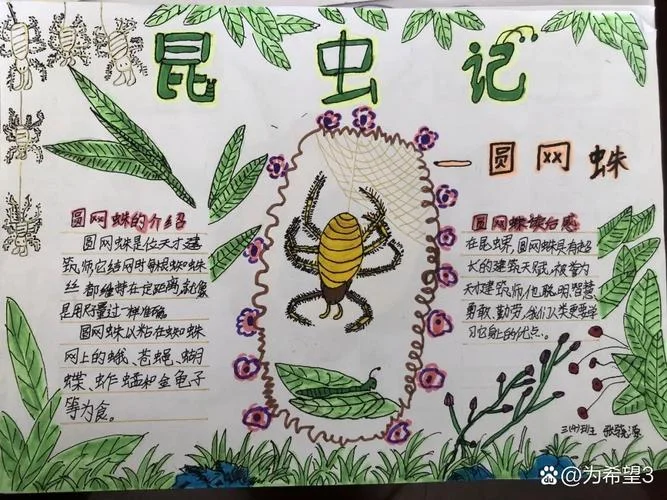 昆虫记
圆网蛛
圆网蛛的介绍
圆网蛛是位天才建
筑师它结网时每根蜘蛛
丝都维持在定距离,就像
是用尺量过一样准确
圆网蛛以粘在蜘蛛
网上的蛾、苍蝇、蝴
蝶、蚱蜢和金龟子
等为食。
圆网蛛读后感
在昆虫界,圆网蛛具有超
长的建筑天赋,被誉为
天才建筑师,他聪明、智慧
勇敢、勤劳,我们人类要学
习它身上的优点。
三(4)班
@为希望3